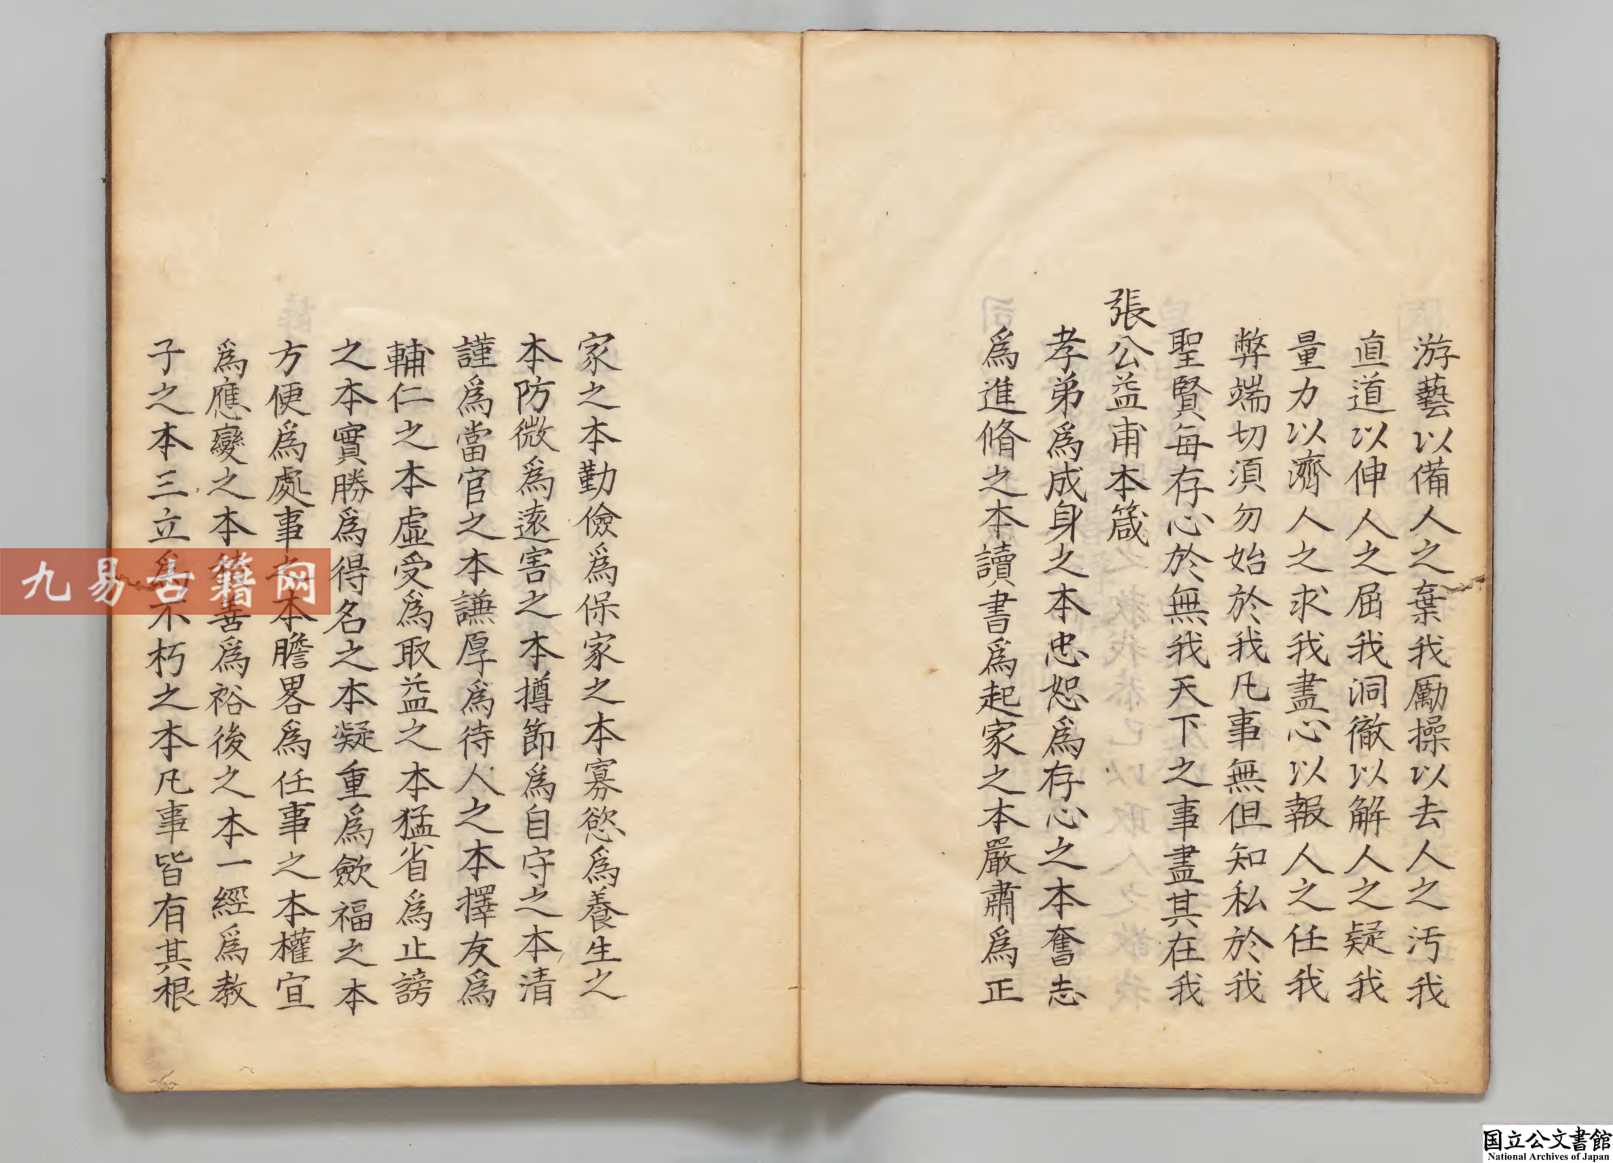 游藝以備人之棄我勵操以去人之汚我
直道以伸人之屈我洞徹以解人之疑我
量力以濟人之求我盡心以報人之任我
弊端切須勿始於我凡事無但知私於我
聖賢每存心於無我天下之事盡其在我
張公益甫本箴
孝弟爲成身之本忠恕爲存心之本奮志
爲進脩之本讀書爲起家之本嚴肅爲正
家之本勤儉爲保家之本寡慾爲養生之
本防微爲遠害之本撙節爲自守之本清
謹爲當官之本謙厚爲待人之本擇友爲
輔仁之本虛受爲取益之本猛省爲止謗
之本實勝爲得名之本凝重爲歛福之本
方便爲處事之本膽畧爲任事之本權宜
爲應變之本積善爲裕後之本一經爲教
子之本三立爲不朽之本凡事皆有其根
九易古籍网
国立公文書館
National Archives of Japan